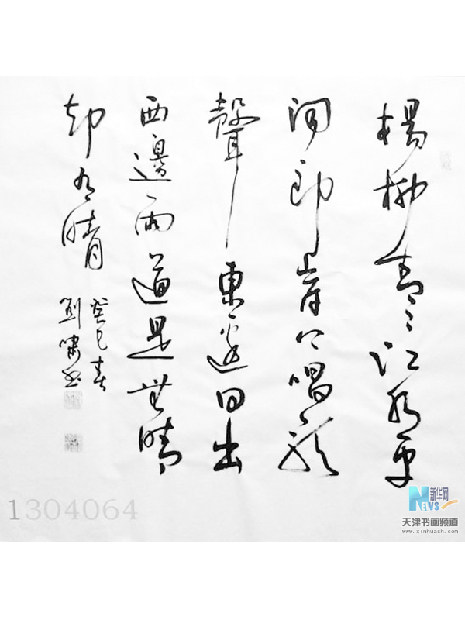 楊柳青〻江水平
聞郎岸上唱歌
聲東邊日出
西邊雨道是無晴
却有晴
癸巳春
1304064
新华网
NEWS
天津书画频道